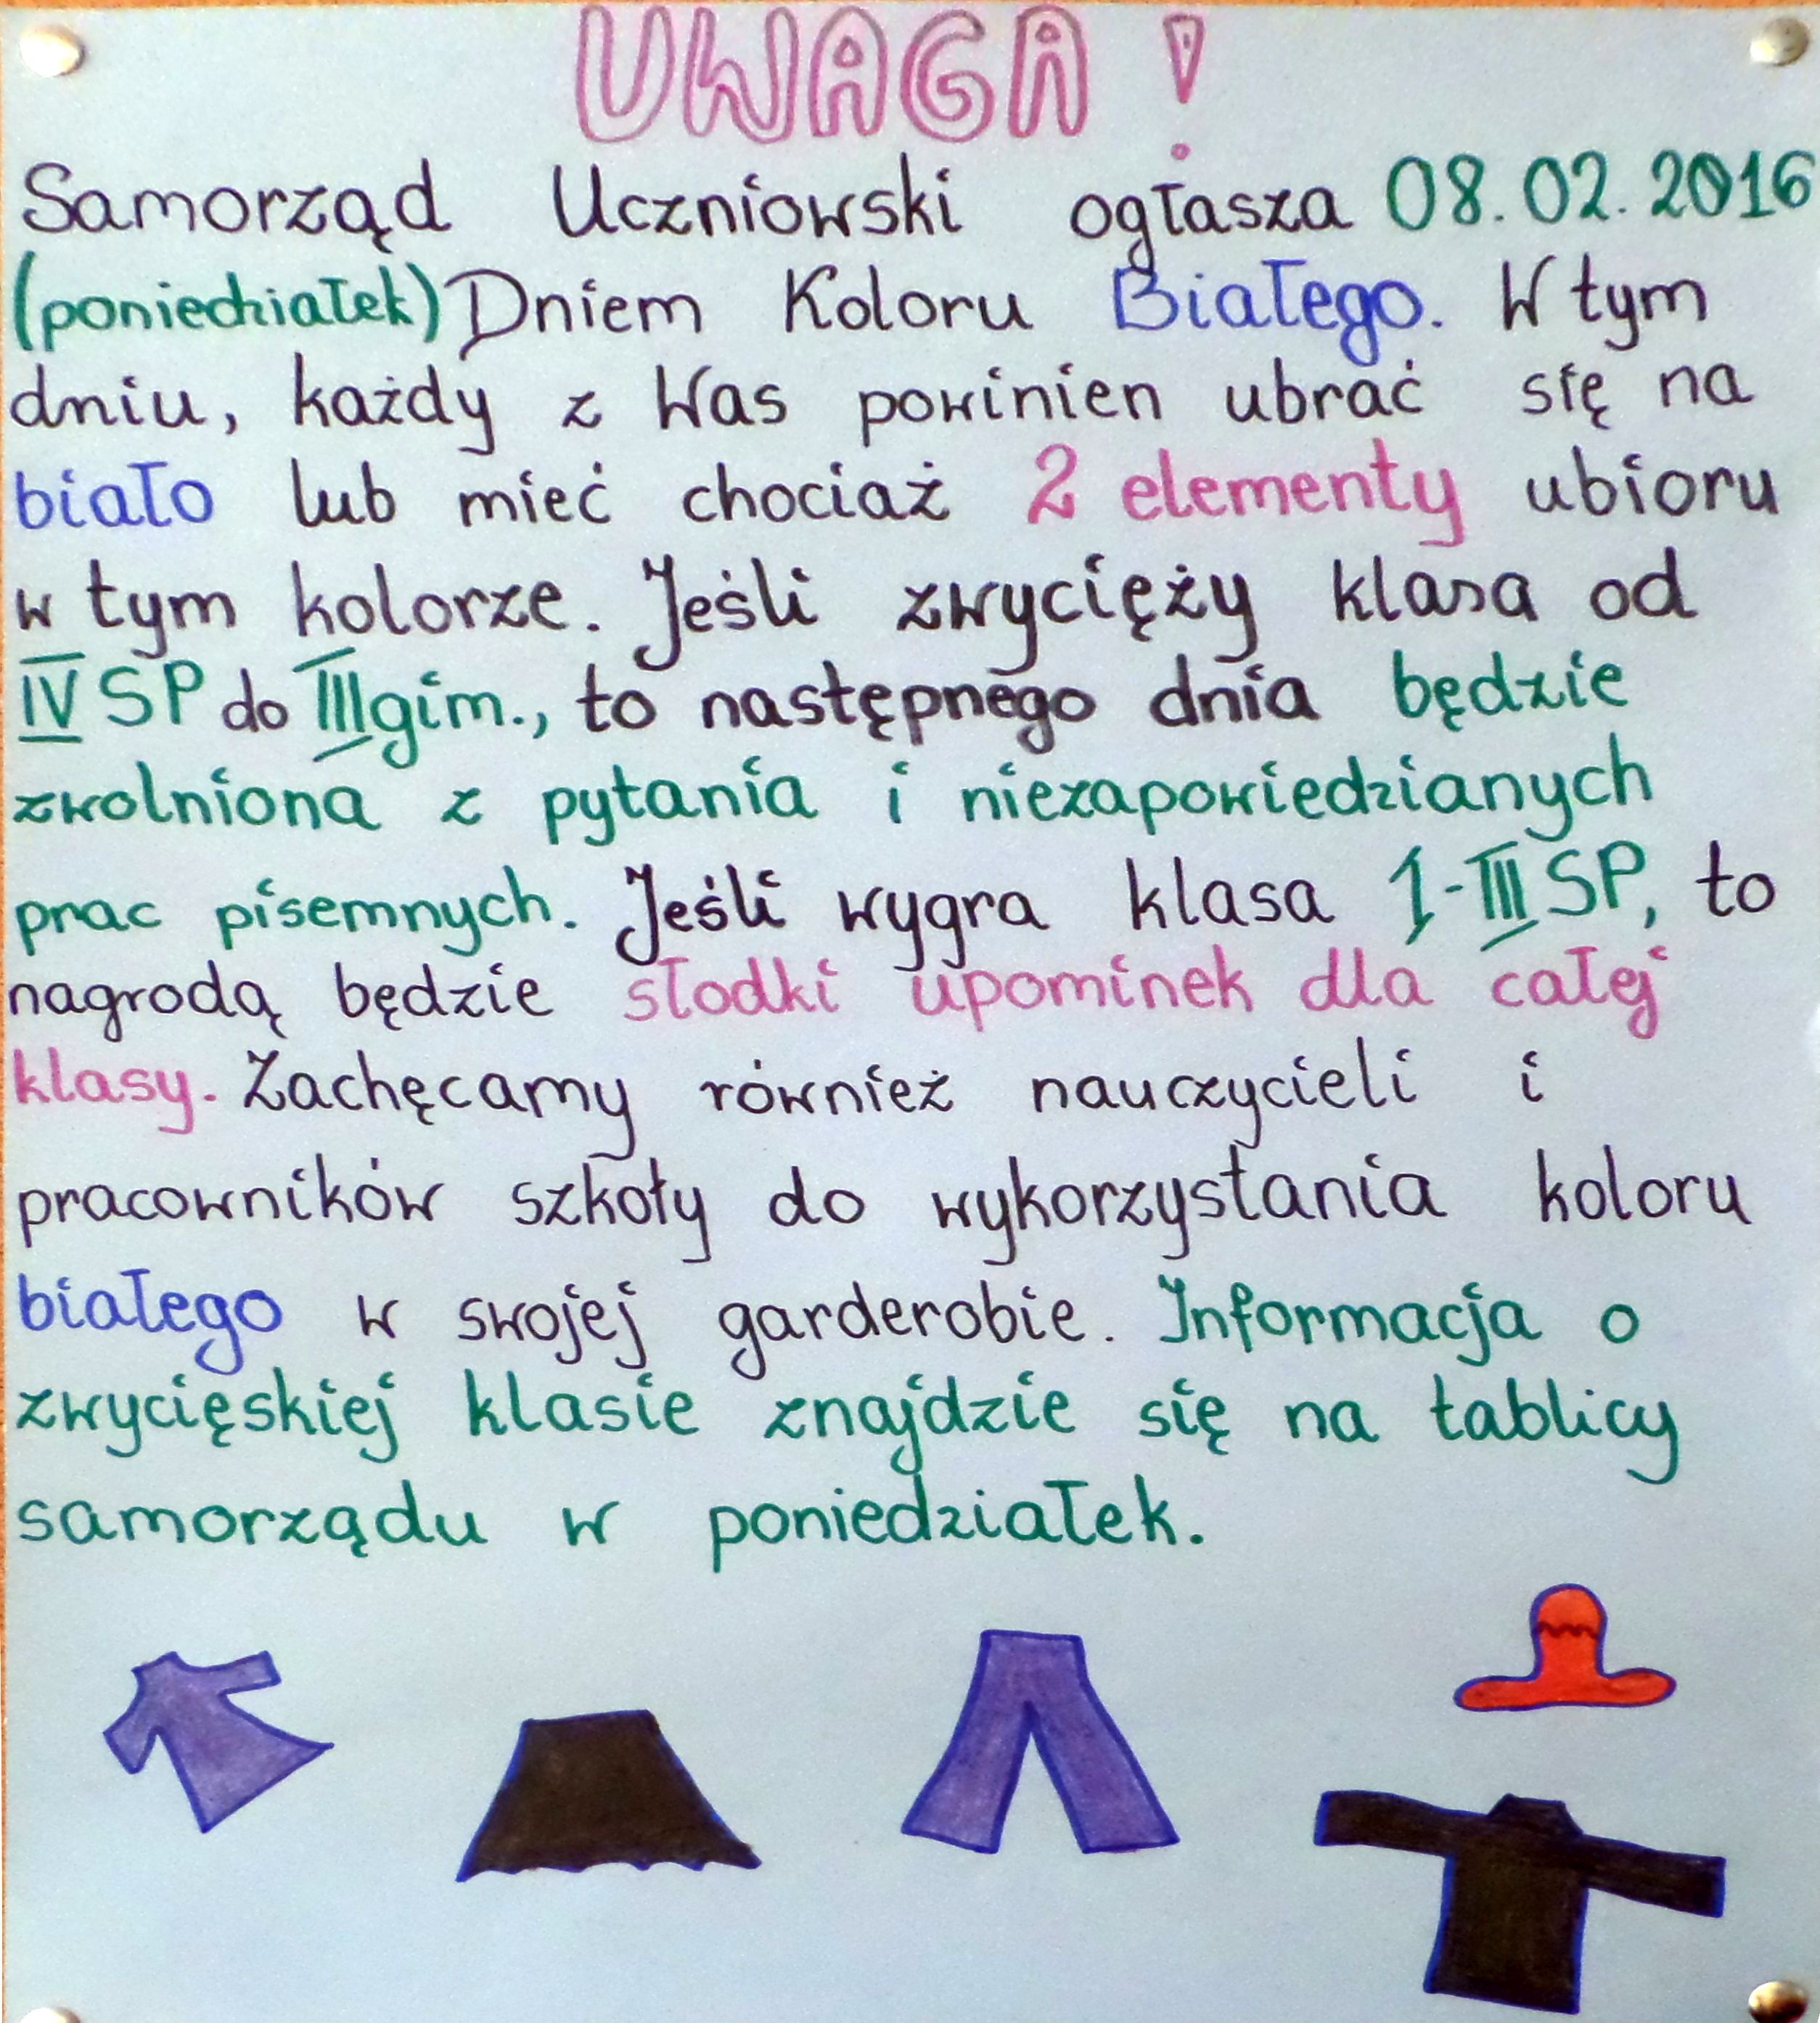 UWAGA!
Samorząd Uczniowski ogłasza 08.02.2016
(poniedziałek) Dniem Koloru Białego. W tym
dniu, każdy z Was powinien ubrać się na
biało lub mieć chociaż 2 elementy ubioru
w tym kolorze. Jeśli zwycięży klasa od
IV SP do III gim., to następnego dnia będzie
zwolniona z pytania i niezapowiedzianych
prac pisemnych. Jeśli wygra klasa 1-III SP, to
nagrodą będzie słodki upominek dla całej
klasy. Zachęcamy również nauczycieli i
pracowników szkoły do wykorzystania koloru
białego w swojej garderobie. Informacja o
zwycięskiej klasie znajdzie się na tablicy
samorządu w poniedziałek.